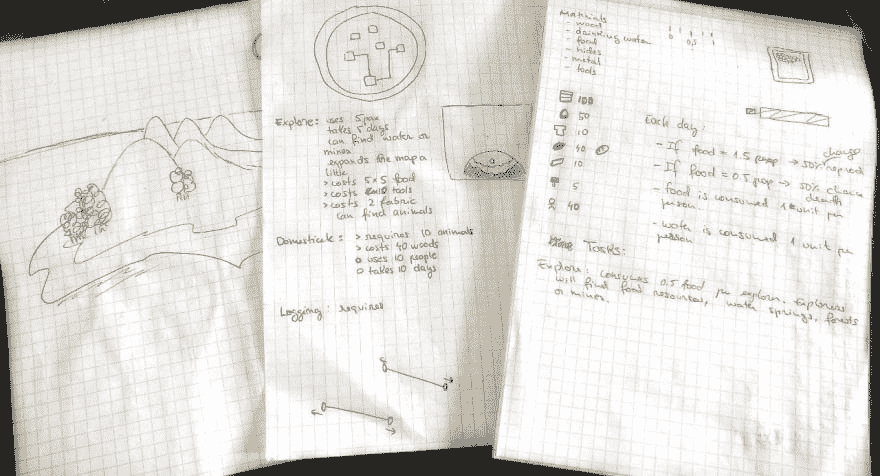 Explore: uses 5 pax
takes 5 days
can find water or
mines
expands the map a
little
> costs 5x5 food
> costs tools
> costs 2 fabric
can find animals
Domesticate: > requires 10 animals
> costs 40 woods
o uses 10 people
o takes 10 days
Logging: requires
Materials
- wood
- drinking water
- food
- hides
- metal
- tools
0 0,5
100
50
10
40
10
5
40
Each day:
- If food = 1.5 pop → 50% reprod
chance
- If food = 0.5 pop → 50% chance
death
- food is consumed 1 unit per
person.
- water is consumed 1 unit per
person
Tasks:
Explore: consumes 0.5 food per explorer. Explorers
will find food resources, water springs, forests
or mines.